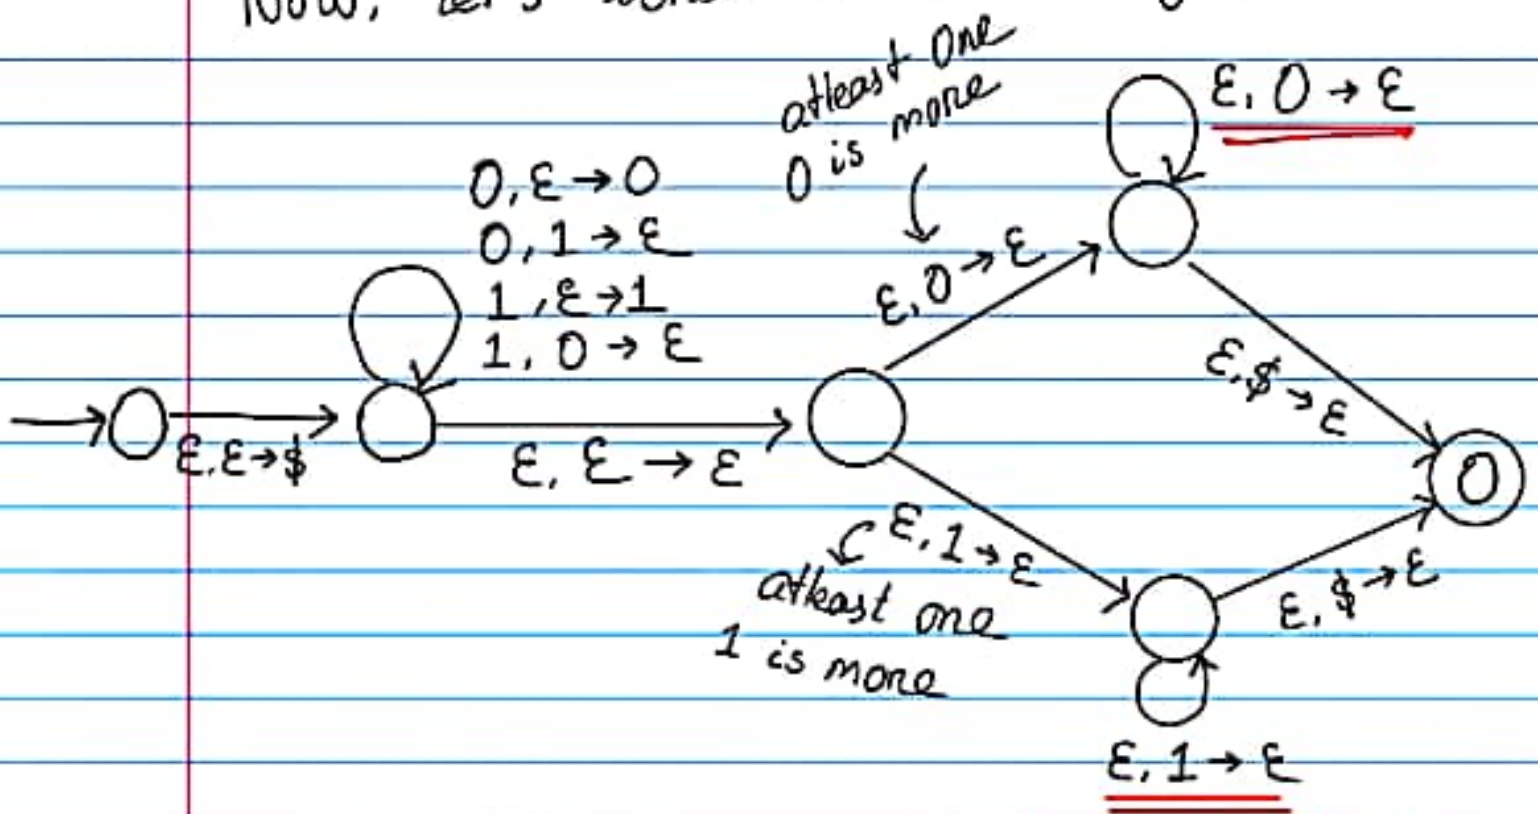 Now, let's
atleast one
0 is more
ε, 0 → ε
0, ε → 0
0, 1 → ε
1, ε → 1
1, 0 → ε
ε, 0 → ε
ε, ε → $
ε, ε → ε
ε, $ → ε
0
ε, 1 → ε
atleast one
1 is more
ε, $ → ε
ε, 1 → ε